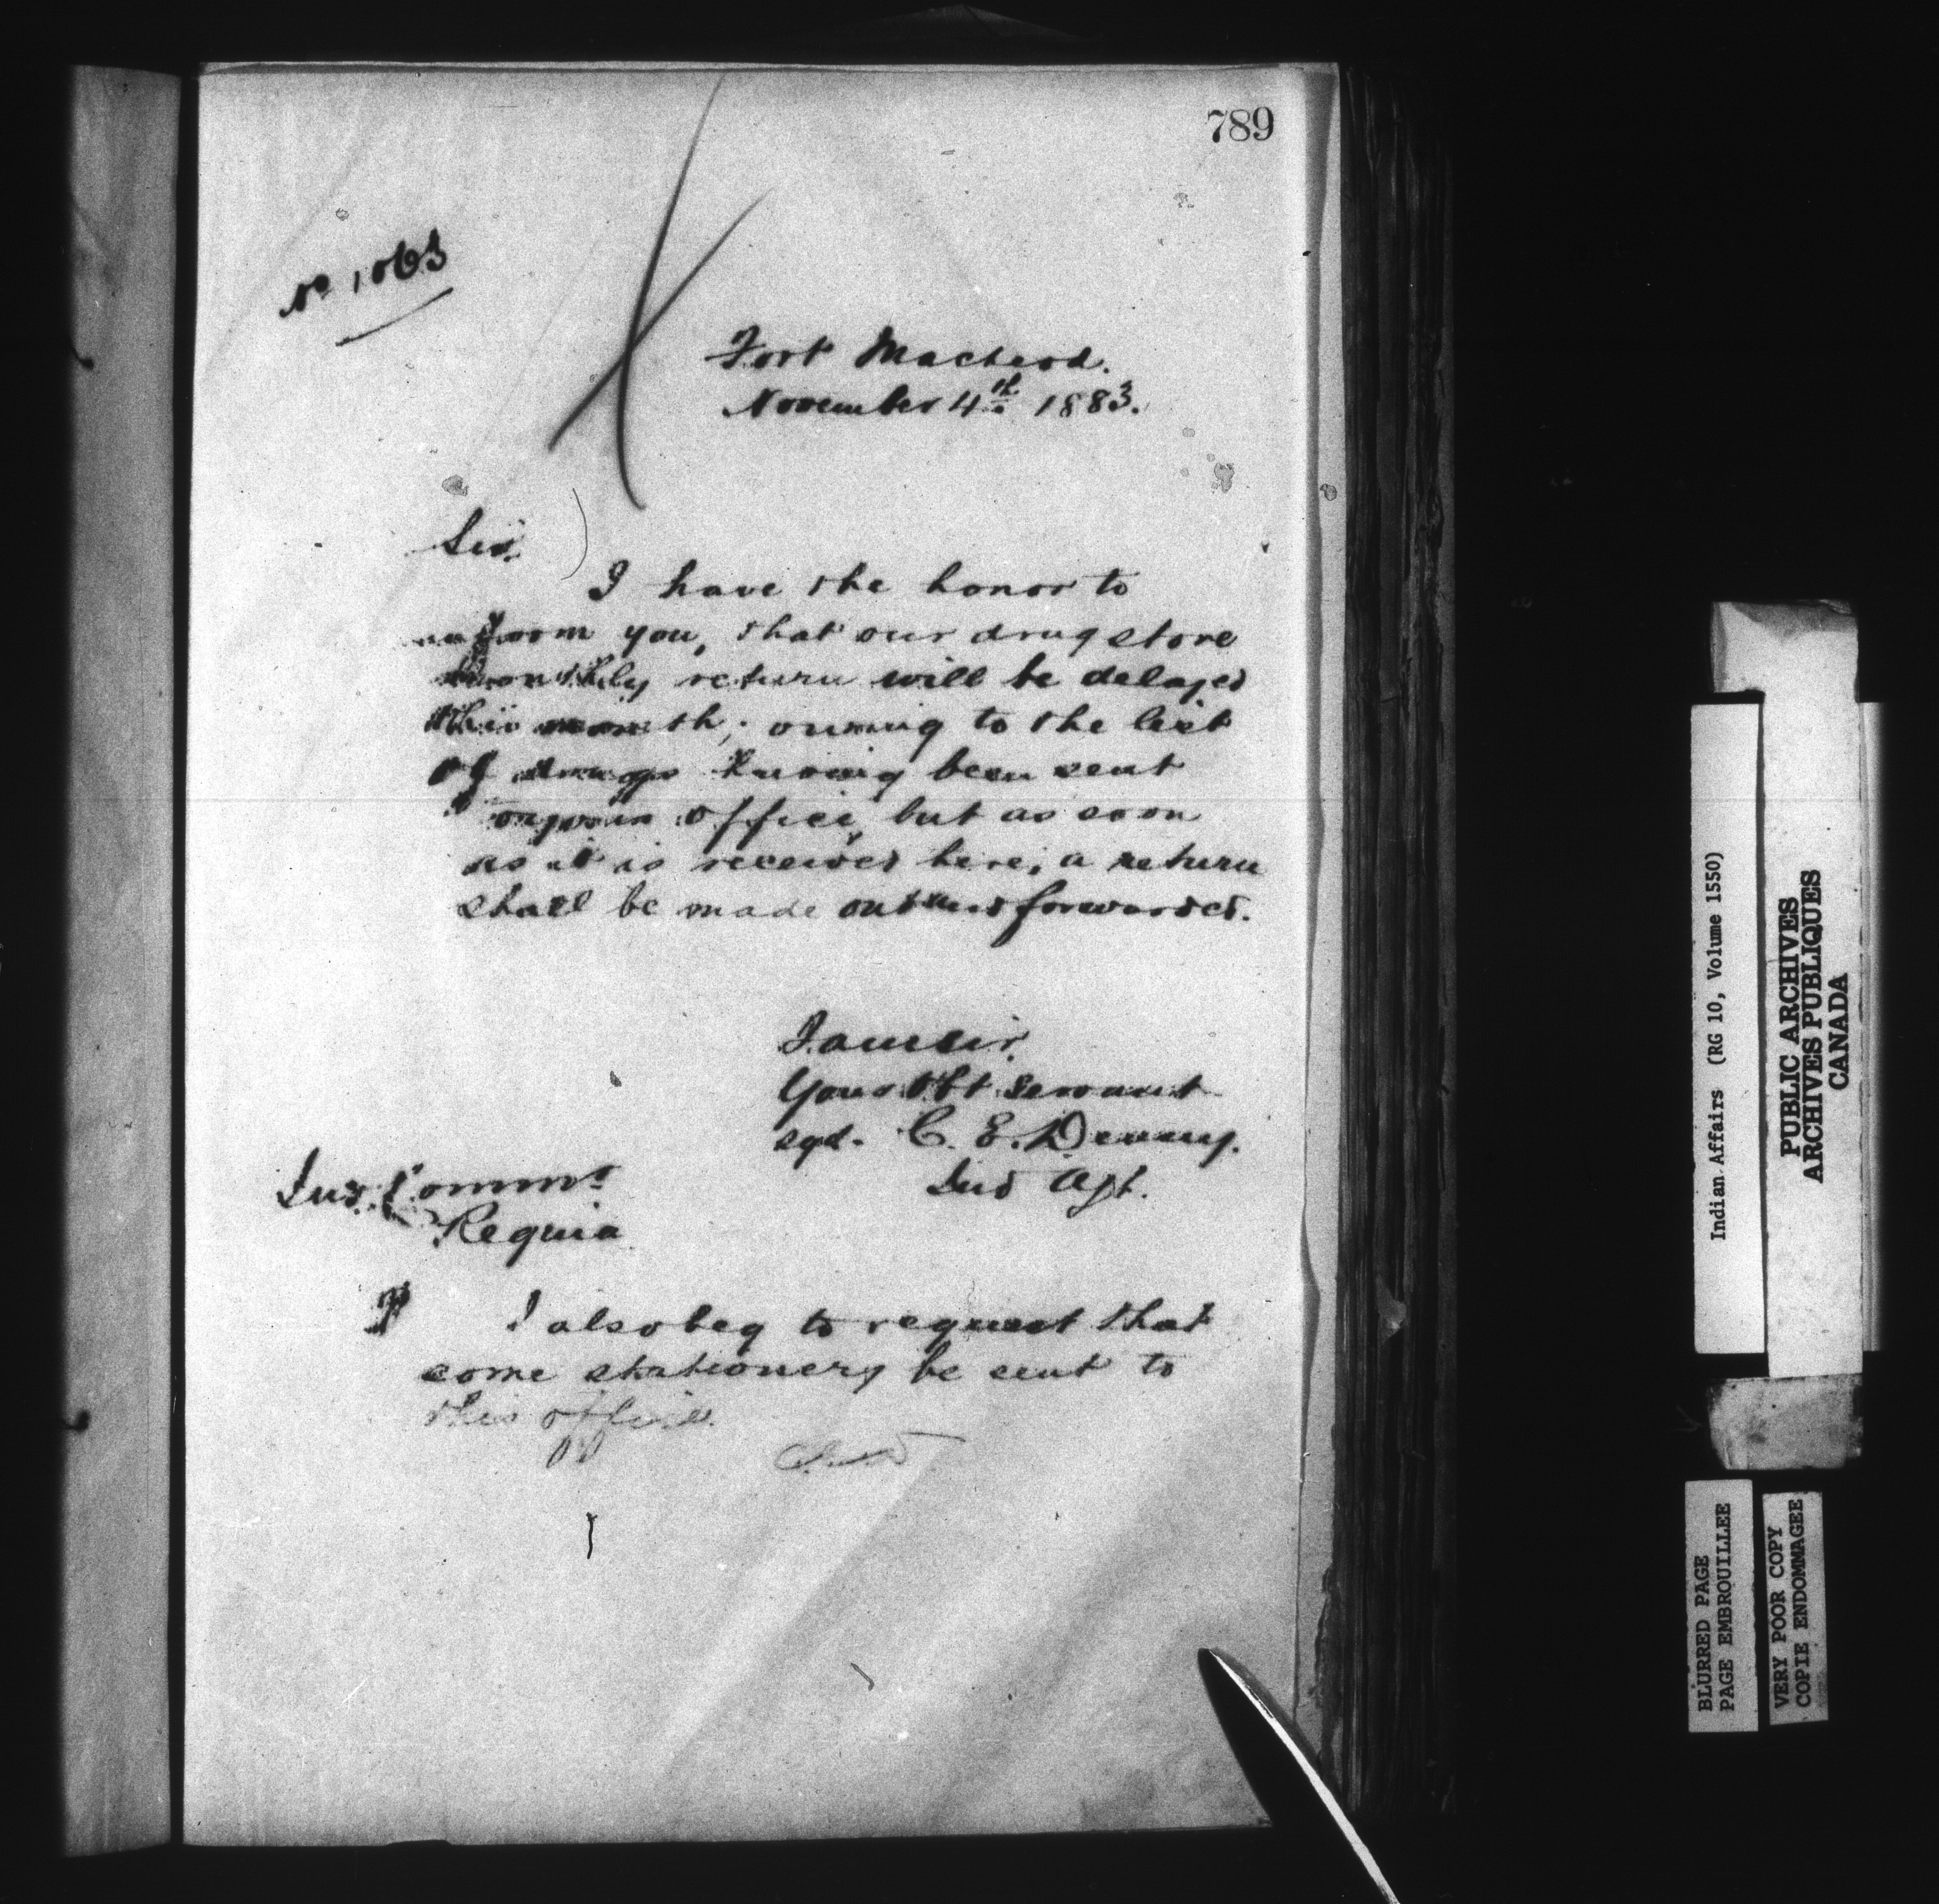 789
No 1063
Fort Macleod.
November 4th 1883.
Sir,
I have the honor to
inform you, that our drug store
monthly return will be delayed
this month; owing to the list
of drugs having been sent
to your office, but as soon
as it is received here, a return
shall be made out and forwarded.
I am sir,
Your Obt servant
sgd. C. E. Denny.
Ind Agt.
Ind. Commr
Regina
I also beg to request that
some stationery be sent to
this office.
Indian Affairs (RG 10, Volume 1550)
PUBLIC ARCHIVES
ARCHIVES PUBLIQUES
CANADA
BLURRED PAGE
PAGE EMBROUILLEE
VERY POOR COPY
COPIE ENDOMMAGEE